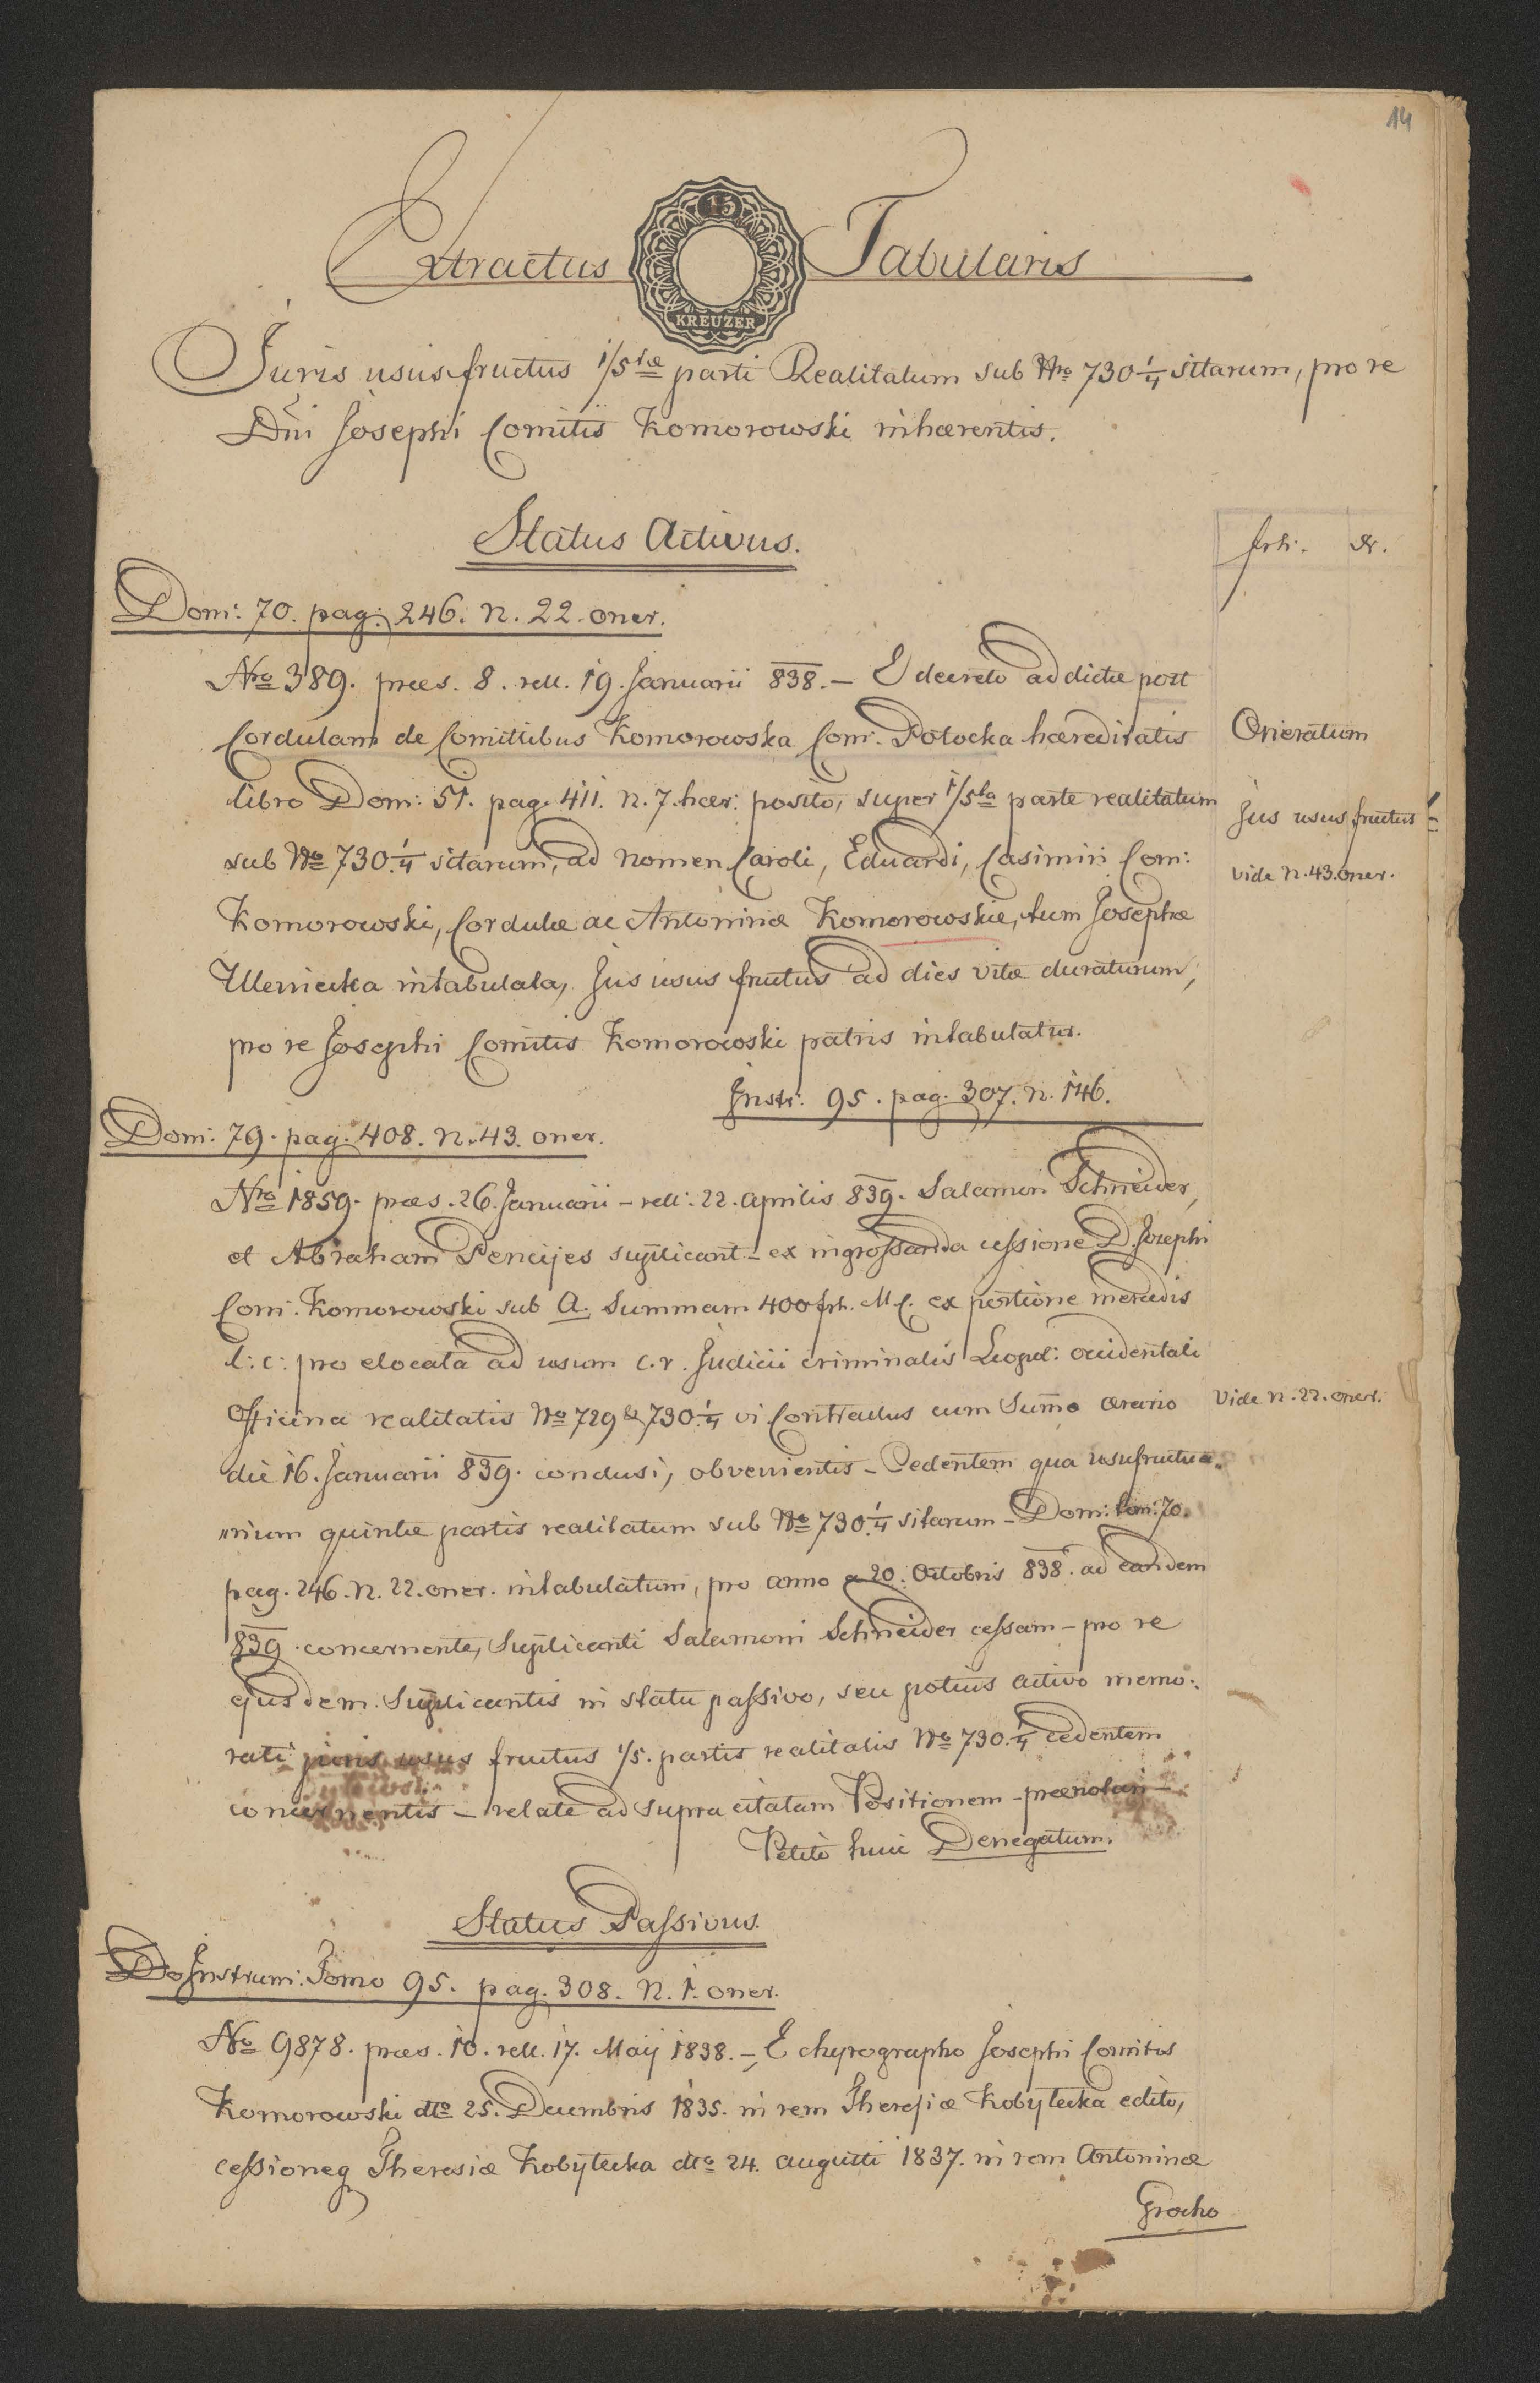 14
Extractus Tabularis
15
KREUZER
Juris ususfructus 1/5tæ parti Realitatum sub Nro 730 1/4 sitarum, pro re
Dni Josephi Comitis Komorowski inhærentis.
Status Activus.
frh. xr.
Dom: 70. pag: 246. n. 22. oner.
Nro 389. præs. 8. rell. 19. Januarii 838. – E decreto addictæ post
Cordulam de Comitibus Komorowska Com. Potocka hæreditatis
Oneratum
libro Dom: 51. pag. 411. n. 7. hær: posito, super 1/5ta parte realitatum
Jus usus fructus
sub No 730 1/4 sitarum, ad nomen Caroli, Eduardi, Casimiri Com:
vide n. 43. oner.
Komorowski, Cordulæ ac Antoninæ Komorowskie, tum Josephæ
intabulata, Jus usus fructus ad dies vitæ duraturum,
pro re Josephi Comitis Komorowski patris intabulatur.
Instr. 95. pag. 307. n. 146.
Dom: 79. pag. 408. n. 43. oner.
Nro 1859. præs. 26. Januarii – rell: 22. aprilis 839. Salamon Schneider,
et Abraham Pencijes suplicant – ex ingrossanda cessione D. Josephi
Com. Komorowski sub A. Summam 400 frh. M C. ex portione mercedis
l: c: pro elocata ad usum c. r. Judicii criminalis Leopol: occidentali
officina realitatis No 729 & 730 1/4 vi Contractus cum Summo ærario
Vide n. 22. oner.
die 16. Januarii 839. conclusi, obvenientis – Cedentem qua usufructua-
„rium quintæ partis realitatum sub No 730 1/4 sitarum – Dom: tom: 70.
pag. 246. n. 22. oner. intabulatum, pro anno a 20. Octobris 838. ad eandem
839. concernente, Suplicanti Salamoni Schneider cessam – pro re
ejusdem Suplicantis in statu passivo, seu potius activo memo-
rati juris usus fructus 1/5. partis realitatis No 730 1/4 cedentem
concernentis – relate ad supra citatam Positionem – prænotari –
Petito huic Denegatum.
Status Passivus.
Do Instrum: Tomo 95. pag. 308. n. 1. oner.
No 9878. præs. 10. rell. 17. Maij 1838. – E chyrographo Josephi Comitis
Komorowski dto 25. Decembris 1835. in rem Theresiæ Kobyłecka edito,
cessioneq Theresiæ Kobyłecka dto 24. augusti 1837. in rem Antoninæ
Grocho